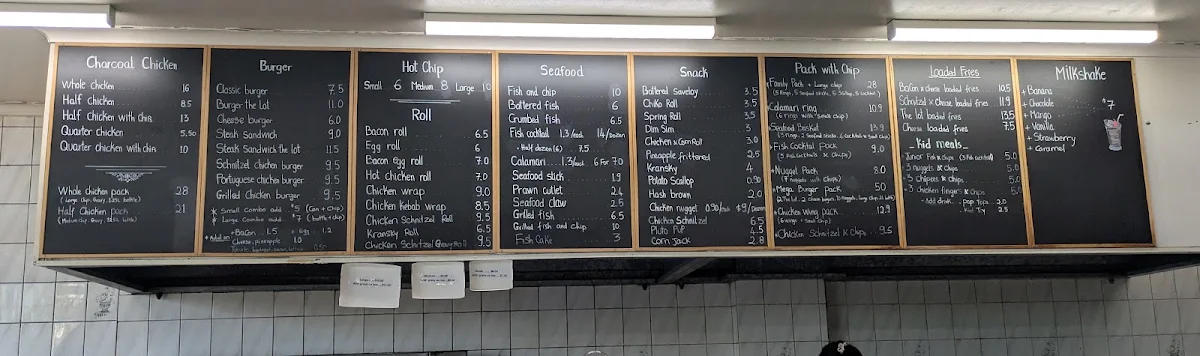 Charcoal Chicken
Whole chicken 16
Half chicken 8.5
Half chicken with chips 13
Quarter chicken 5.50
Quarter chicken with chips 10
Whole chicken pack 28
(Large chip, Gravy, 1.25L bottle)
Half Chicken pack 21
(Medium chip, Gravy, 1.25L bottle)
Burger
Classic burger 7.5
Burger the lot 11.0
Cheese burger 6.0
Steak Sandwich 9.0
Steak Sandwich the lot 11.5
Schnitzel Chicken burger 9.5
Portuguese chicken burger 9.5
Grilled Chicken burger 9.5
* Small Combo add $5 (Can + chip)
* Large Combo add $7 (bottle + chip)
* Add on: +Bacon 1.5 + egg 1.2
Cheese, pineapple 1.0
Hot Chip
Small 6 Medium 8 Large 10
Roll
Bacon roll 6.5
Egg roll 6
Bacon egg roll 7.0
Hot chicken roll 7.0
Chicken wrap 9.0
Chicken kebab wrap 8.5
Chicken Schnitzel Roll 9.5
Kransky Roll 6.5
Chicken Schnitzel Gravy Roll 9.5
Seafood
Fish and chip 10
Battered fish 6
Crumbed fish 6.5
Fish cocktail 1.3/each 14/Dozen
* Half dozen (6) 7.5
Calamari 1.3/each 6 For 7.0
Seafood stick 1.9
Prawn cutlet 2.4
Seafood claw 2.5
Grilled fish 6.5
Grilled fish and chip 10
Fish Cake 3
Snack
Battered Saveloy 3.5
Chiko Roll 3.5
Spring Roll 3.5
Dim Sim 3
Chicken & Corn Roll 3.0
Pineapple frittered 2.5
Kransky 4
Potato Scallop 0.90
Hash brown 2.0
Chicken nugget 0.90/each $9/Dozen
Chicken Schnitzel 6.5
Pluto Pup 4.5
Corn Jack 2.8
Pack with Chip
*Family Pack + Large chips 28
*Calamari ring 10.9
(6 rings + small chip)
*Seafood Basket 13.9
*Fish Cocktail Pack 9.0
(5 Fish Cocktails & Chips)
*Nugget Pack 8.0
(7 nuggets with chips)
*Mega Burger pack 50
*Chicken Wing pack 12.9
(6 wings + Small chip)
*Chicken Schnitzel & Chips 9.5
Loaded Fries
Bacon & cheese loaded fries 10.5
Schnitzel & cheese loaded fries 11.9
The lot loaded fries 13.5
Cheese loaded fries 7.5
_ Kid meals _
Junior Fish & Chips (3 Fish Cocktail) 5.0
3 nuggets & Chips 5.0
5.0
3 Chicken fingers & Chips 5.0
- Add drink: Pop Tops 2.0
2.5
Milkshake
+ Banana
+ Chocolate
+ Mango
+ Vanilla
+ Strawberry
+ Caramel
$7